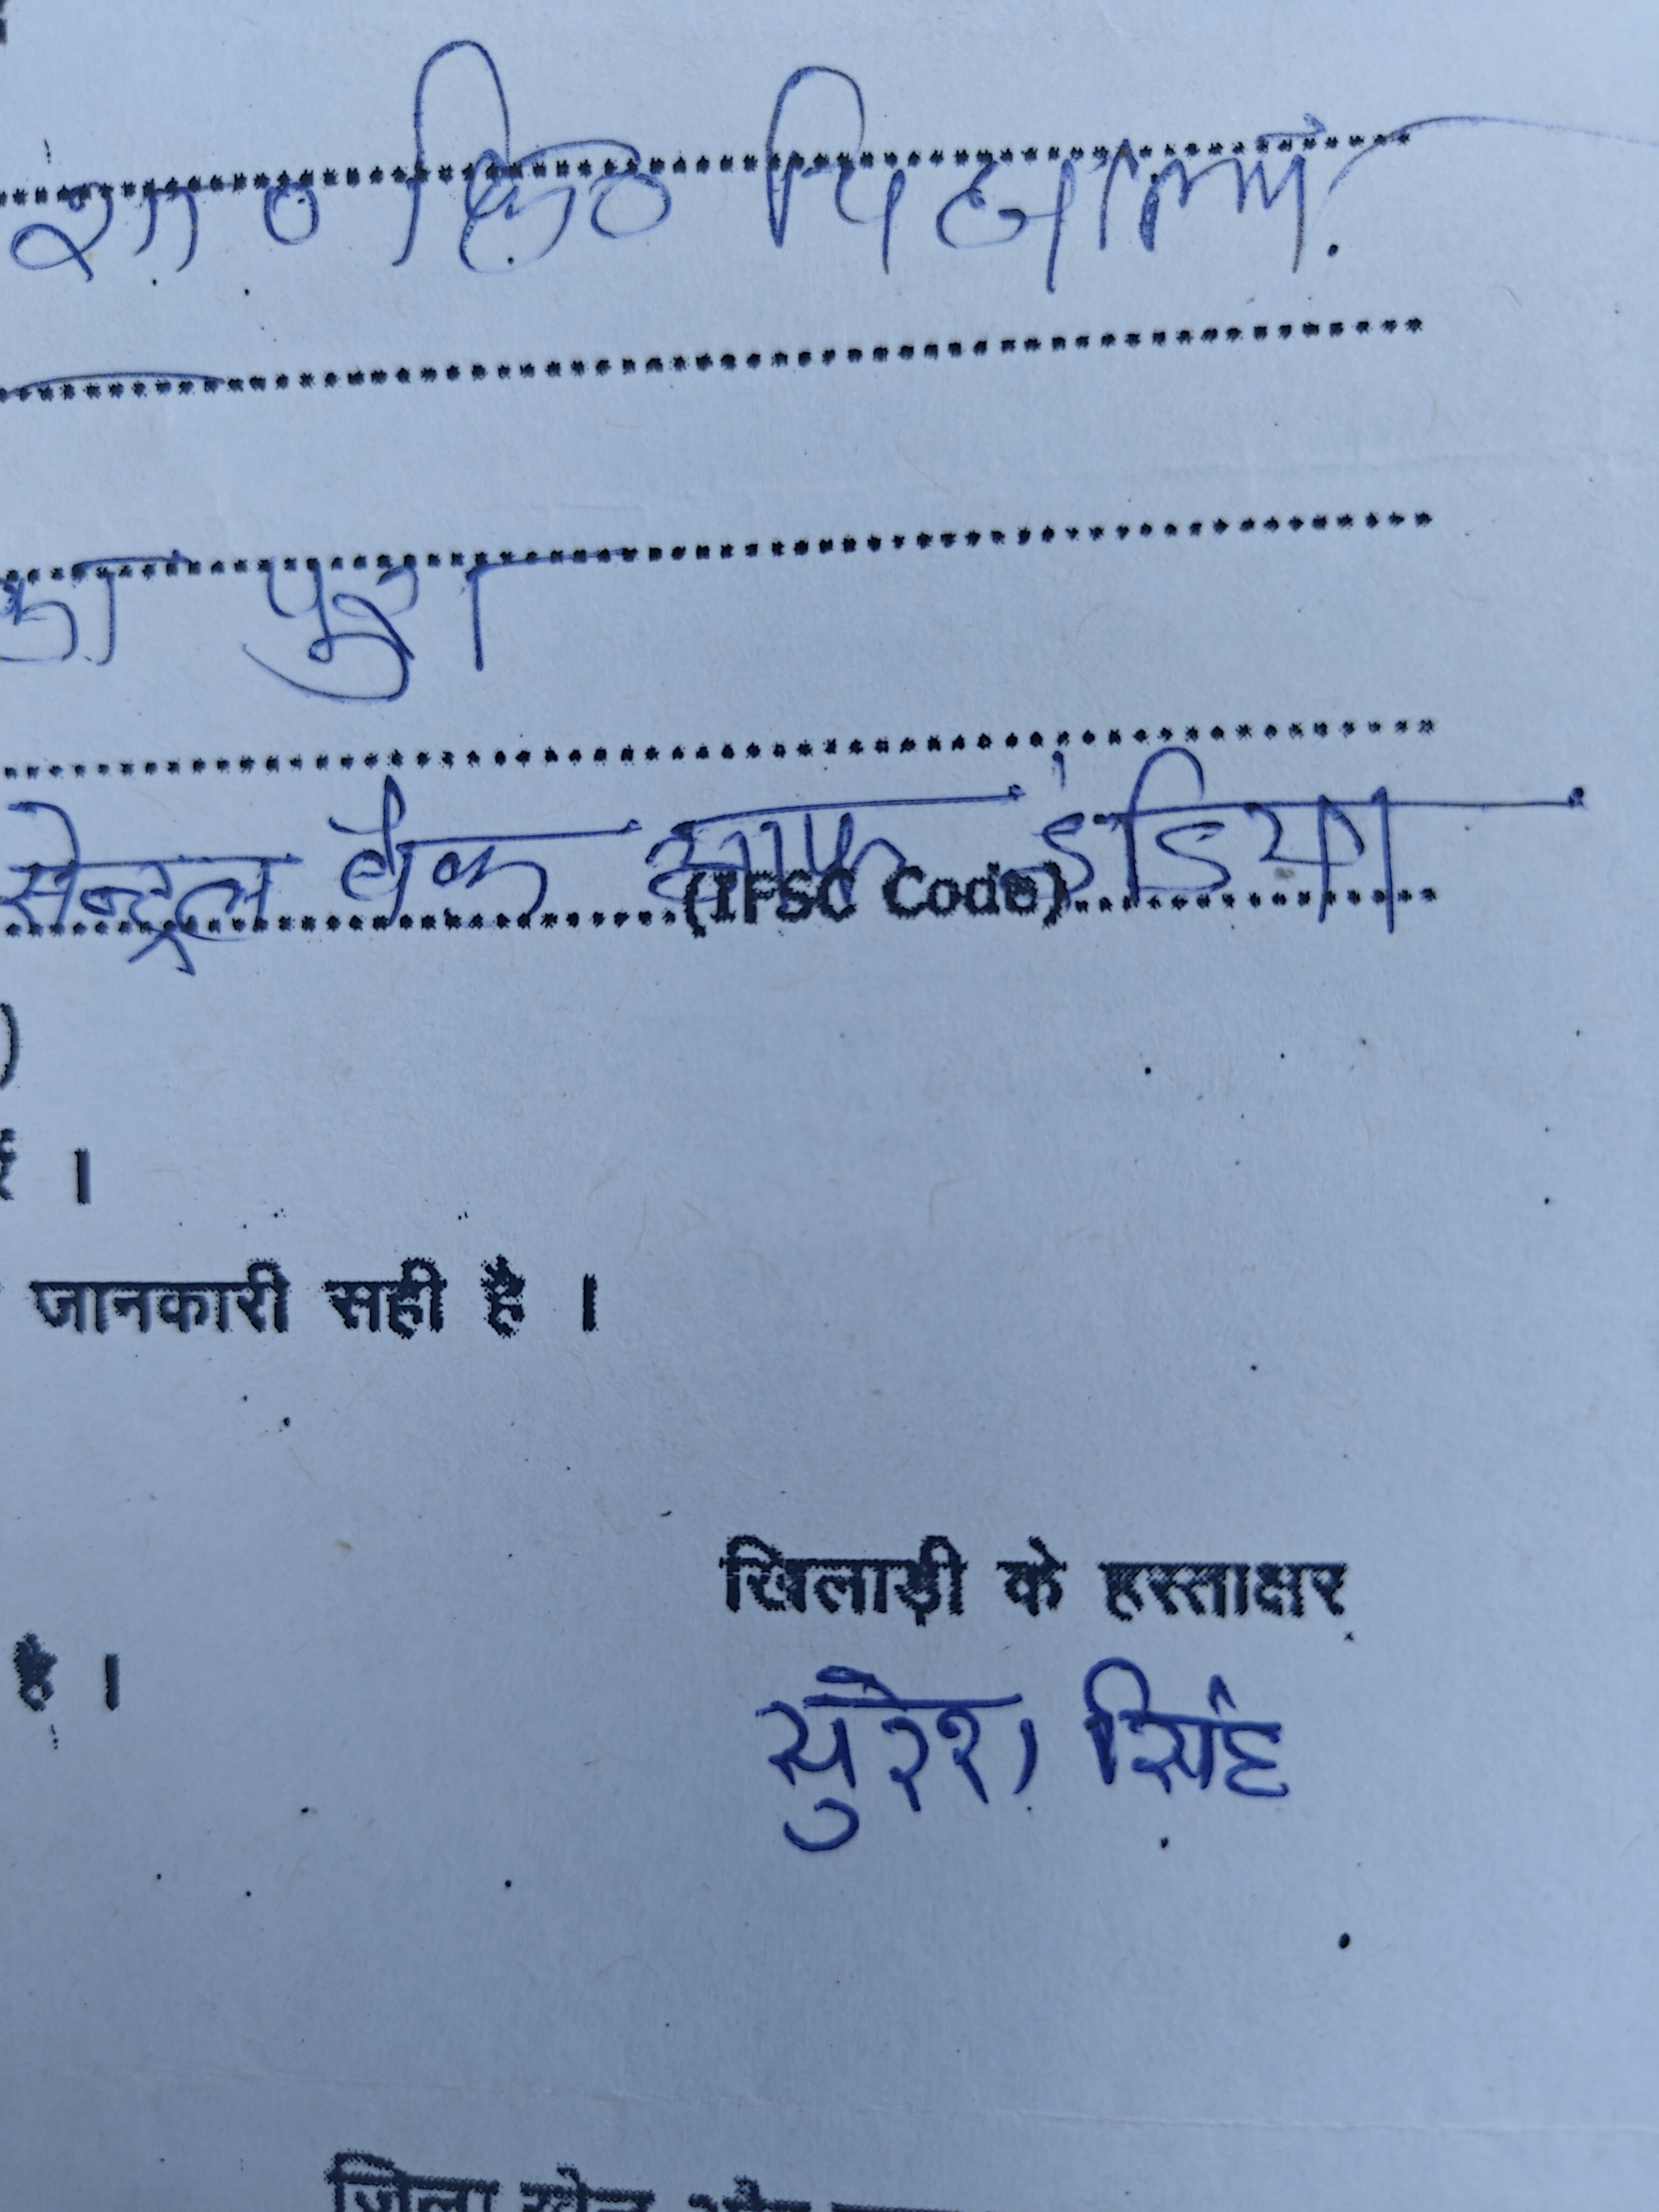 शा० कि० विद्यालय
का पुरा
सेन्ट्रल बैंक आफ इंडिया
(IFSC Code)
।
जानकारी सही है ।
खिलाड़ी के हस्ताक्षर
है ।
सुरेश सिंह
जिला खेल और